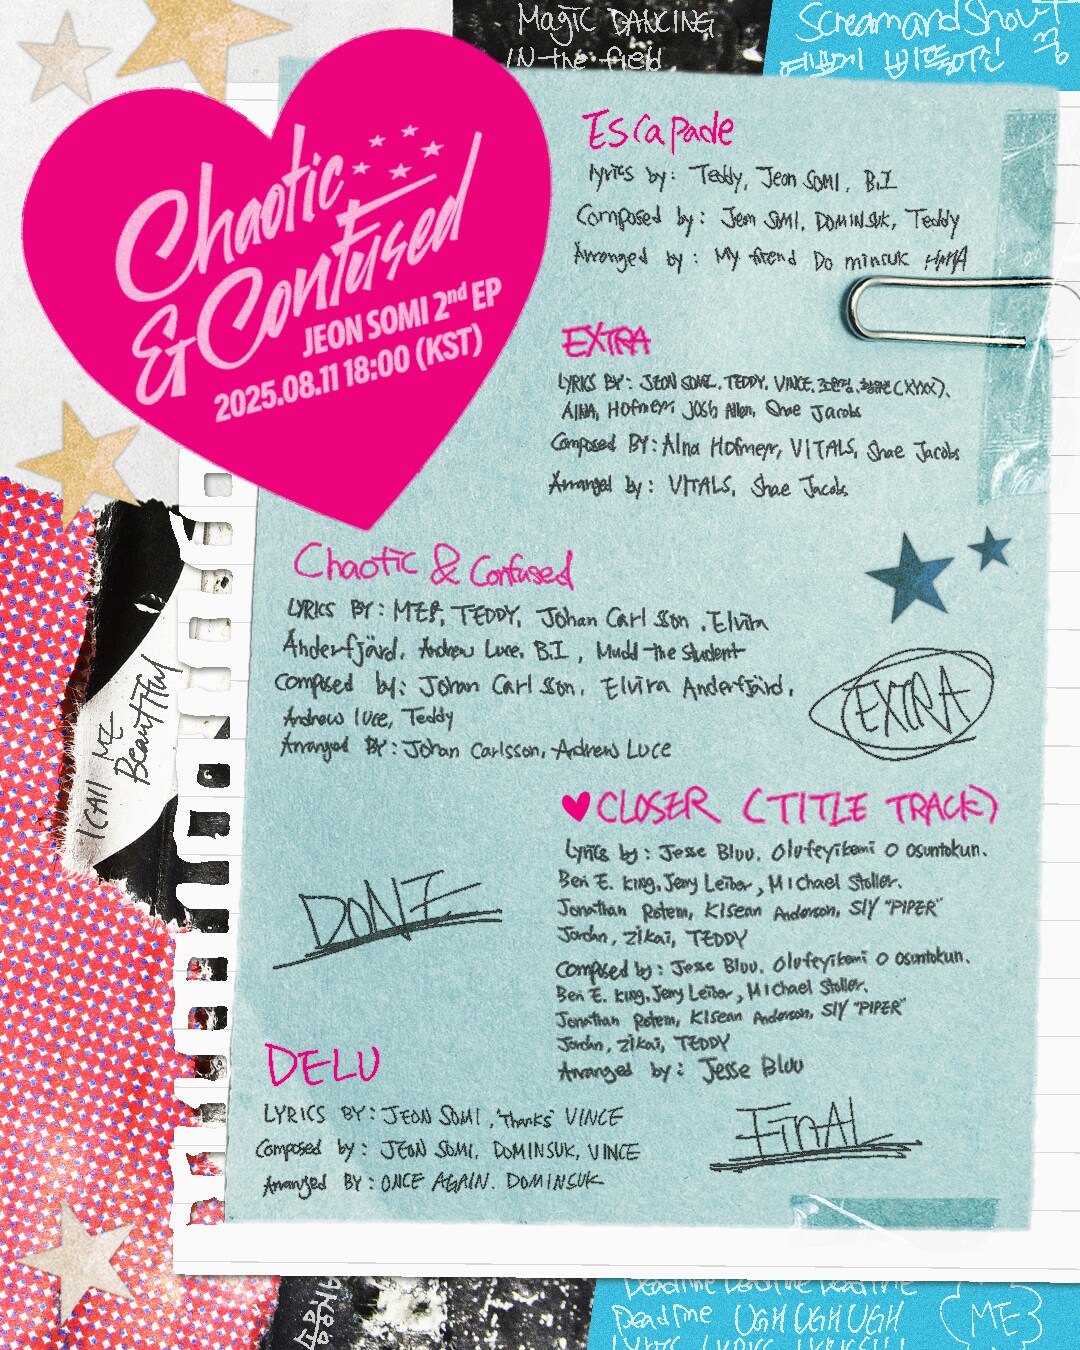 Magic DANCING
IN the field
Screamandshout
예쁘게 삐뚤어진
Chaotic
& Confused
JEON SOMI 2nd EP
2025.08.11 18:00 (KST)
Escapade
Lyrics by: Teddy, Jeon SOMI, B.I
Composed by: Jeon SOMI, DOMINSUK, Teddy
Arranged by: My friend Do minsuk HAHA
EXTRA
LYRICS BY: JEON SOMI, TEDDY, VINCE, (XYXX),
AINA, Hofmeyr, Josh Allen, Shae Jacobs
Composed BY: AIna Hofmeyr, VITALS, Shae Jacobs
Arranged by: VITALS, Shae Jacobs
Chaotic & Confused
LYRICS BY: ME!, TEDDY, Johan Carlsson, Elvira
Anderfjärd, Andrew Luce, B.I, Mudd-the student
Composed by: Johan Carlsson, Elvira Anderfjärd,
Andrew luce, Teddy
Arranged BY: Johan Carlsson, Andrew Luce
EXTRA
I CAll ME
Beautiful
♥ CLOSER (TITLE TRACK)
Lyrics by: Jesse Bluu, Olufeyikemi O Osuntokun,
Ben E. King, Jerry Leiber, Michael Stoller,
Jonathan Rotem, Kisean Anderson, Sly "PIPER"
Jordan, Zikai, TEDDY
Composed by: Jesse Bluu, Olufeyikemi O Osuntokun,
Ben E. King, Jerry Leiber, Michael Stoller,
Jonathan Rotem, Kisean Anderson, Sly "PIPER"
Jordan, Zikai, TEDDY
Arranged by: Jesse Bluu
DONE
DELU
LYRICS BY: JEON SOMI, "Thanks" VINCE
Composed by: JEON SOMI, DOMINSUK, VINCE
Arranged BY: ONCE AGAIN, DOMINSUK
FinAL
Deadline Deadline Deadline
Deadline UGH UGH UGH
ME